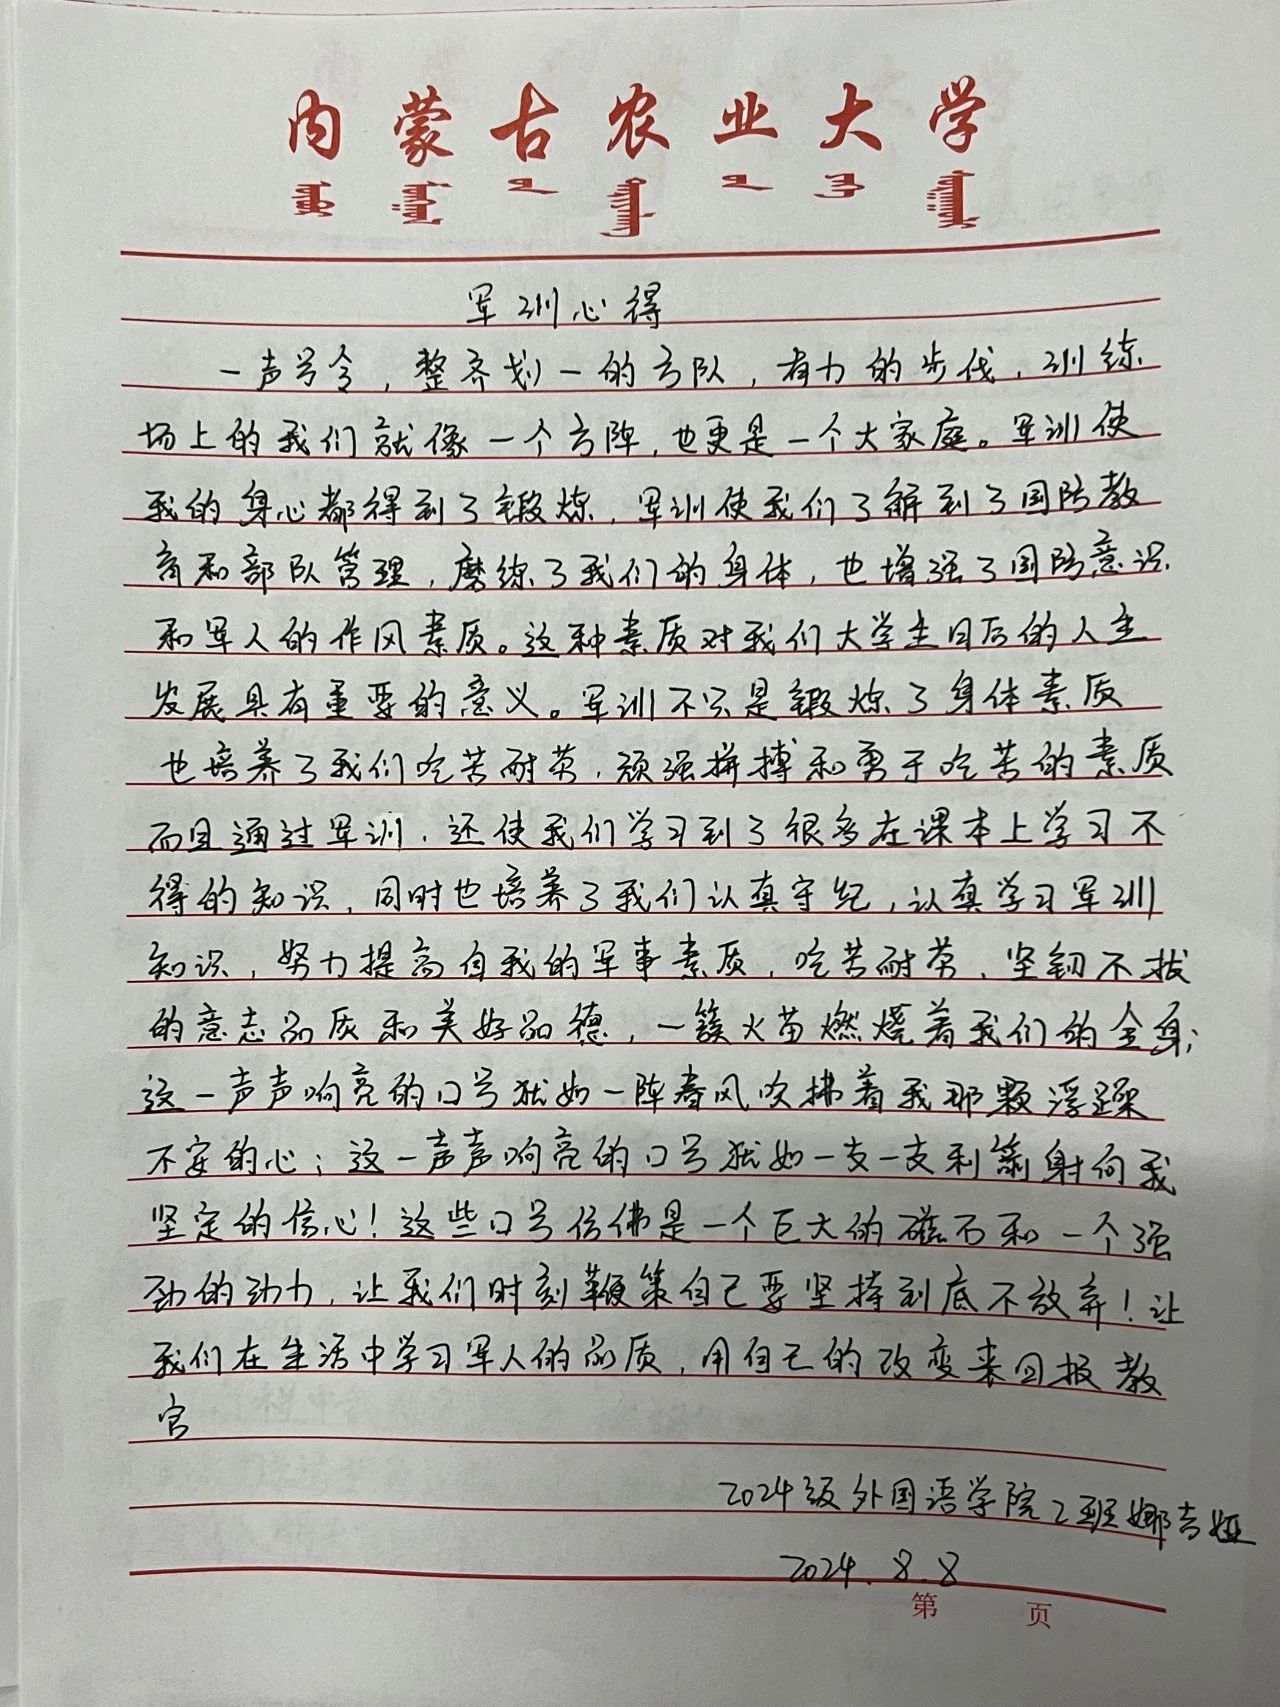 内蒙古农业大学
军训心得
一声号令，整齐划一的方队，有力的步伐，训练
场上的我们就像一个方阵，也更是一个大家庭。军训使
我的身心都得到了锻炼，军训使我们了解到了国防教
育和部队管理，磨练了我们的身体，也增强了国防意识
和军人的作风素质。这种素质对我们大学生日后的人生
发展具有重要的意义。军训不只是锻炼了身体素质
也培养了我们吃苦耐劳，顽强拼搏和勇于吃苦的素质
而且通过军训，还使我们学习到了很多在课本上学习不
得的知识，同时也培养了我们认真守纪，认真学习军训
知识，努力提高自我的军事素质，吃苦耐劳，坚韧不拔
的意志品质和美好品德，一簇火苗燃烧着我们的全身；
这一声声响亮的口号犹如一阵春风吹拂着我那颗浮躁
不安的心；这一声声响亮的口号犹如一支一支利箭射向我
坚定的信心！这些口号仿佛是一个巨大的磁石和一个强
劲的动力，让我们时刻鞭策自己要坚持到底不放弃！让
我们在生活中学习军人的品质，用自己的改变来回报教
官
2024级外国语学院2班娜吉娅
2024.8.8
第 页